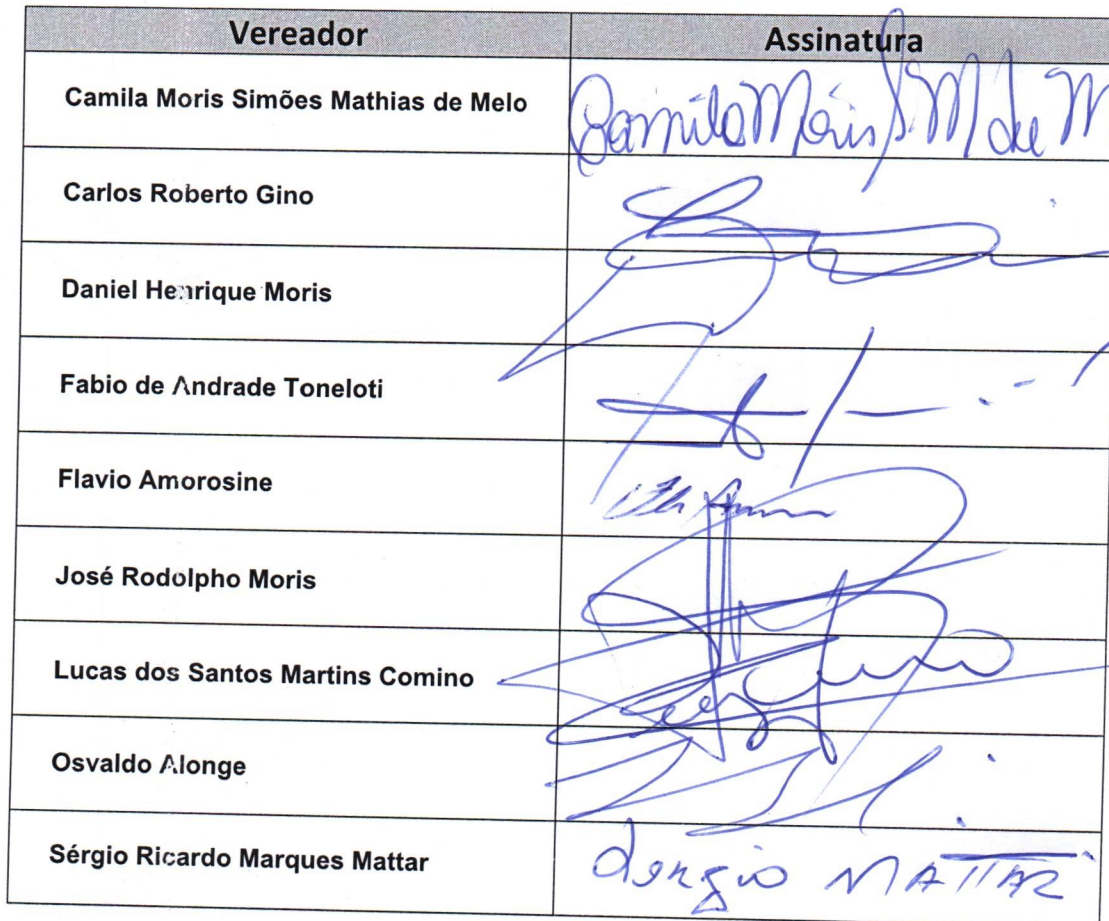 Vereador Assinatura
Camila Moris Simões Mathias de Melo Camila Móris S M de M
Carlos Roberto Gino
Daniel Henrique Moris
Fabio de Andrade Toneloti
Flavio Amorosine
José Rodolpho Moris
Lucas dos Santos Martins Comino
Osvaldo Alonge
Sérgio Ricardo Marques Mattar Sergio MATTAR